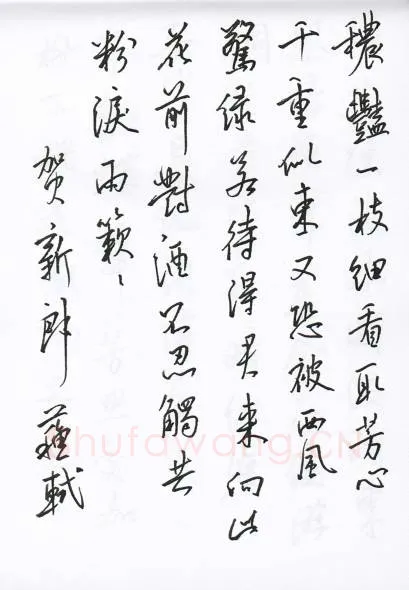 穠豔一枝細看取芳心
千重似束又恐被西風
驚绿若待得君来向此
花前對酒不忍觸共
粉淚兩簌〻
贺新郎 蘇軾
shufawang.CN